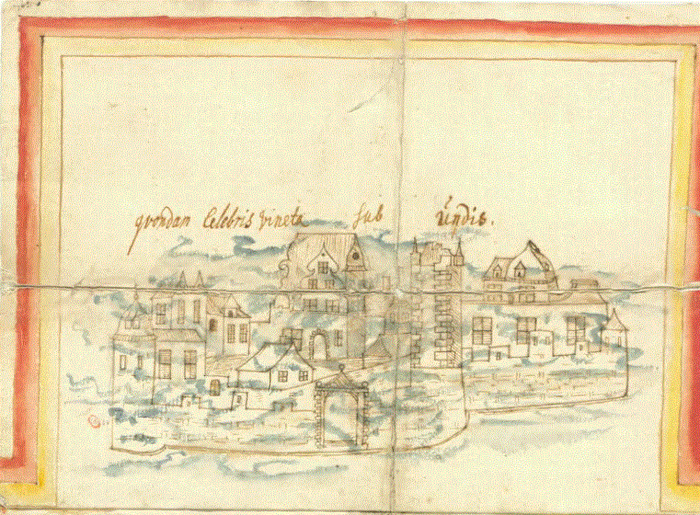 qvondan Celebris Vineta sub Ũndis.